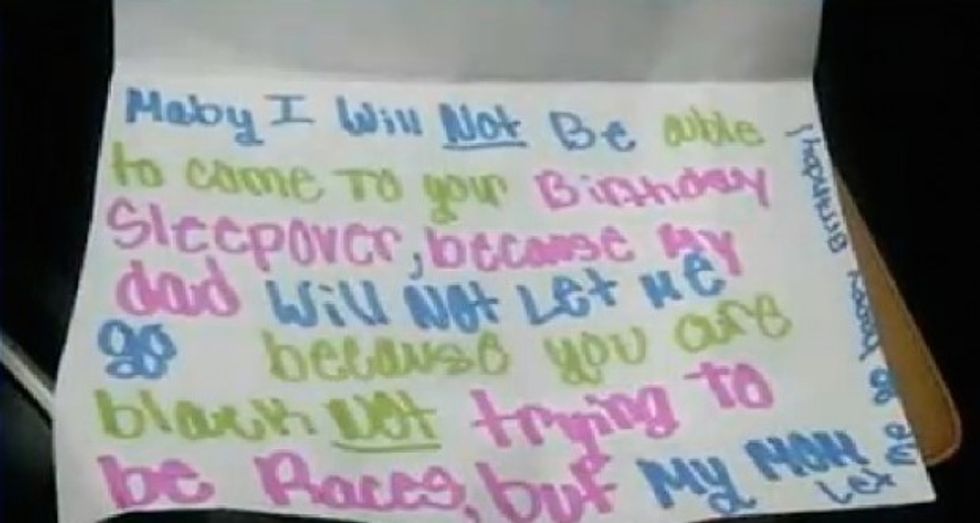 Maby I Will Not Be able
to come To your Birthday
Sleepover, because My
dad Will Not Let Me
go because you are
black Not trying to
be Races, but My MOM
Let Me go
Birthday!